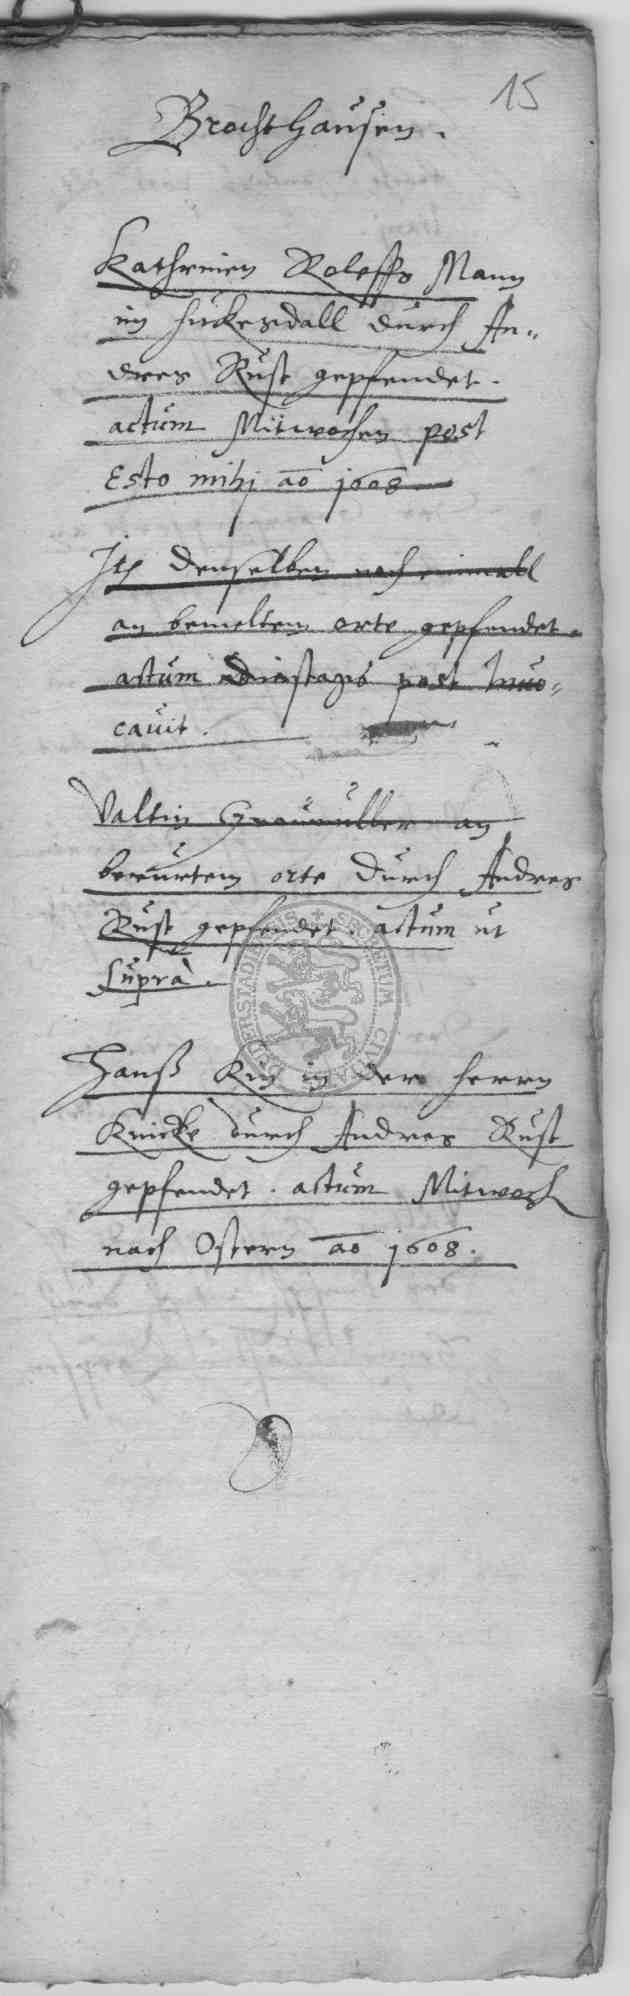 15
Brochthausen.
Kathreinen Roleffs Mann
im Huckesdall durch An-
dres Rust gepfendet.
actum Mitwochen post
Esto mihj ao 1608
Jtem denselben noch einmall
an bemeltem orte gepfendet.
actum Dinstags post Inuo-
cauit.
Valtin Graumüller an
berurtem orte durch Andres
Rust gepfendet. actum ut
supra.
Hanß in der Herrn
Knicke durch Andres Rust
gepfendet. actum Mitwoch
nach Ostern ao 1608.
DUDERSTADIENSIS SECRETUM CIVITATIS